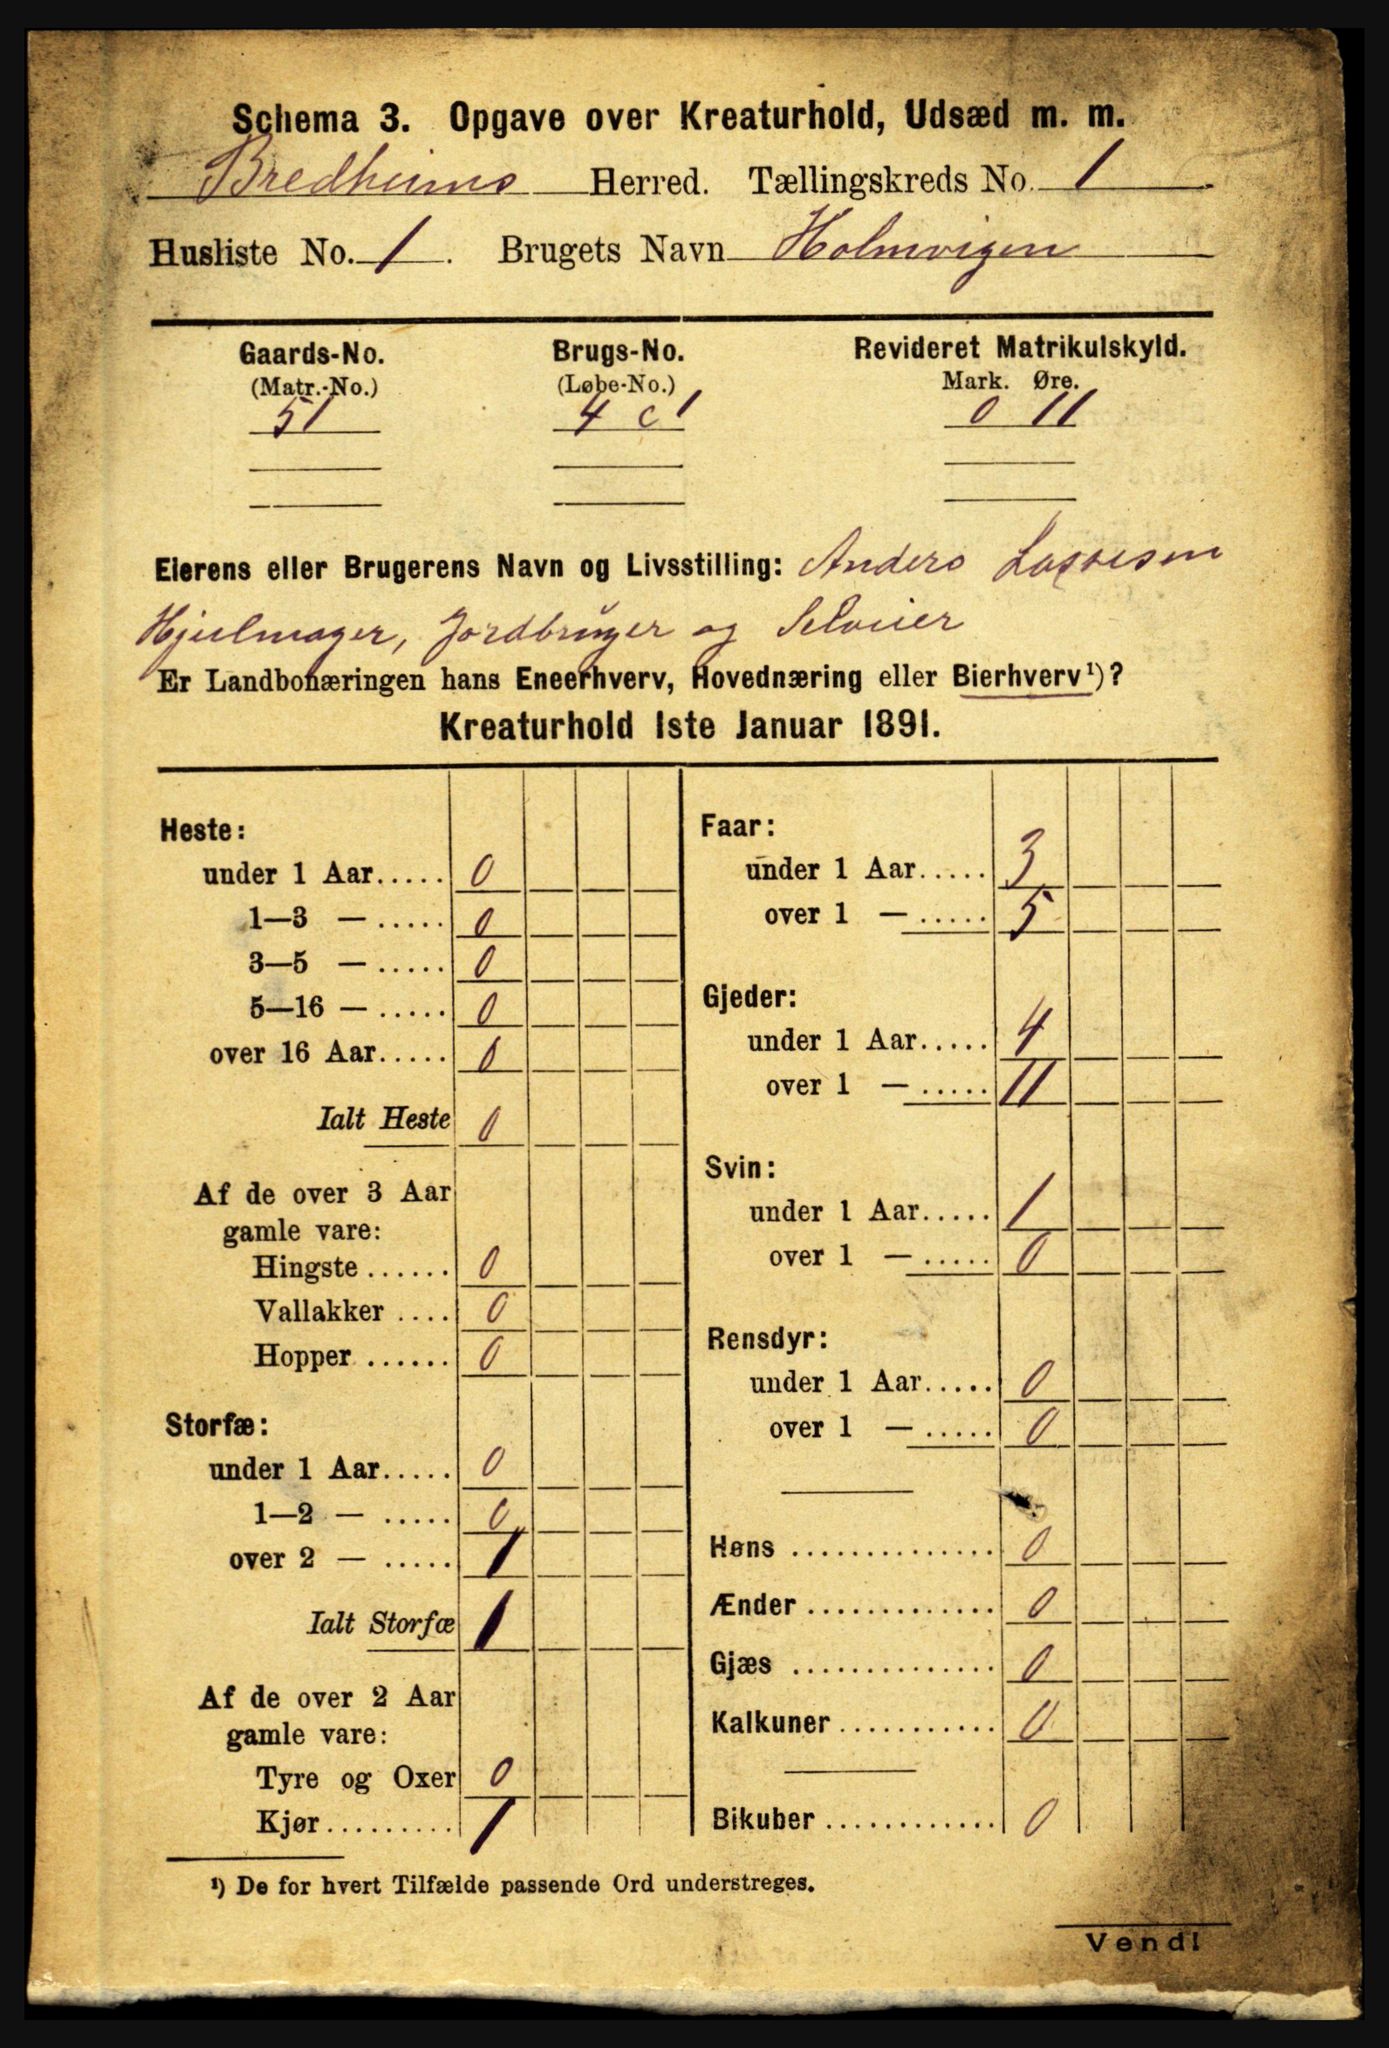 Schema 3. Opgave over Kreaturhold, Udsæd m. m.
Bredheims Herred. Tællingskreds No. 1
Husliste No. 1. Brugets Navn Holmvigen
Gaards-No. Brugs-No. Revideret Matrikulskyld.
(Matr.-No.) (Løbe-No.) Mark. Øre.
51 4 c 1 0 11
Eierens eller Brugerens Navn og Livsstilling: Anders Lassesen
Hjulmager, Jordbruger og Selveier
Er Landbonæringen hans Eneerhverv, Hovednæring eller Bierhverv¹)?
Kreaturhold 1ste Januar 1891.
Heste:
under 1 Aar..... 0
1—3 — ..... 0
3—5 — ..... 0
5—16 — ..... 0
over 16 Aar..... 0
Ialt Heste 0
Af de over 3 Aar
gamle vare:
Hingste ...... 0
Vallakker .... 0
Hopper ...... 0
Storfæ:
under 1 Aar..... 0
1—2 — ..... 0
over 2 — ..... 1
Ialt Storfæ 1
Af de over 2 Aar
gamle vare:
Tyre og Oxer 0
Kjør......... 1
Faar:
under 1 Aar..... 3
over 1 — ..... 5
Gjeder:
under 1 Aar..... 4
over 1 — ..... 11
Svin:
under 1 Aar..... 1
over 1 — ..... 0
Rensdyr:
under 1 Aar..... 0
over 1 — ..... 0
Høns .............. 0
Ænder ............. 0
Gjæs .............. 0
Kalkuner ........... 0
Bikuber ............ 0
¹) De for hvert Tilfælde passende Ord understreges.
Vend!